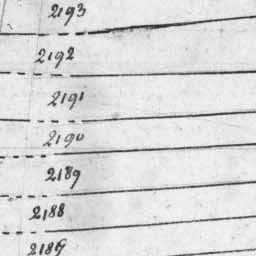 2193
2192
2191
2190
2189
2188
2187